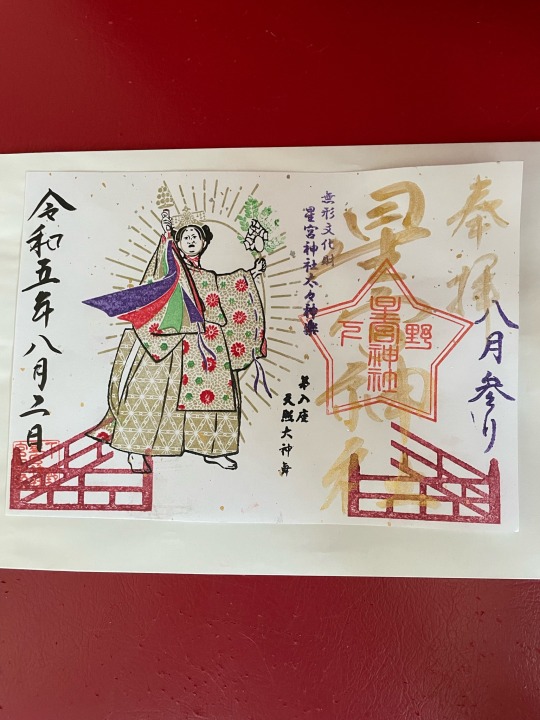 奉拝
八月参り
星宮神社
下野
星宮神社
無形文化財
星宮神社太々神楽
第八座
天照大神舞
令和五年八月二日